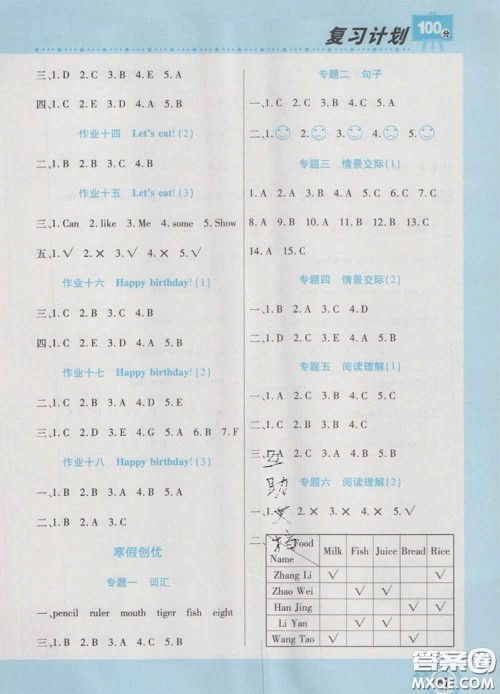 复习计划 100分
三、1. D 2. C 3. B 4. E 5. A
四、1. C 2. D 3. A 4. B
作业十四 Let's eat!(2)
二、1. B 2. C 3. B 4. B
作业十五 Let's eat!(3)
三、1. Can 2. like 3. Me 4. some 5. Show
五、1. √ 2. × 3. √ 4. × 5. √
作业十六 Happy birthday!(1)
三、1. B 2. B 3. C 4. B
四、1. C 2. D 3. A 4. B
作业十七 Happy birthday!(2)
二、1. C 2. B 3. A 4. D 5. B
三、1. C 2. D 3. E 4. G 5. A 6. B 7. F
作业十八 Happy birthday!(3)
一、1. B 2. A 3. A 4. D
二、1. B 2. A 3. C
寒假创优
专题一 词汇
一、pencil ruler mouth tiger fish eight
三、1. B 2. A 3. B 4. C 5. A
专题二 句子
一、1. C 2. C 3. A 4. B 5. A
二、1. 2. 3. 4. 5.
专题三 情景交际(1)
1. A 2. A 3. B 4. C 5. A 6. C 7. C
8. A 9. B 10. C 11. B 12. B 13. C
14. A 15. C
专题四 情景交际(2)
一、1. B 2. A 3. C 4. D
二、1. D 2. E 3. A 4. C 5. B
专题五 阅读理解(1)
一、1. C 2. B 3. A 4. B 5. C
二、1. C 2. A 3. B 4. A 5. B
三、1. A 2. C 3. B 4. A 5. C
专题六 阅读理解(2)
一、1. 2. × 3. × 4. × 5. √
二、
Food Milk Fish Juice Bread Rice
Name
Zhang Li √ √
Zhao Wei √ √
Han Jing √ √
Li Yan √ √
Wang Tao √ √
答案圈
MXQE.COM